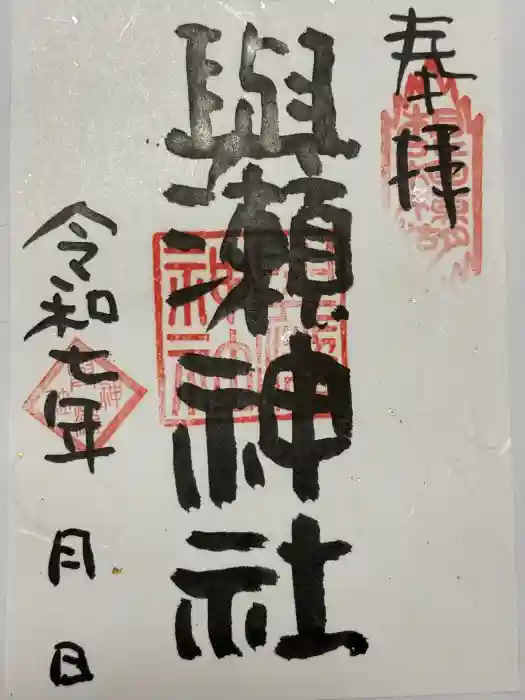 奉拝
與瀬神社
令和七年 月 日